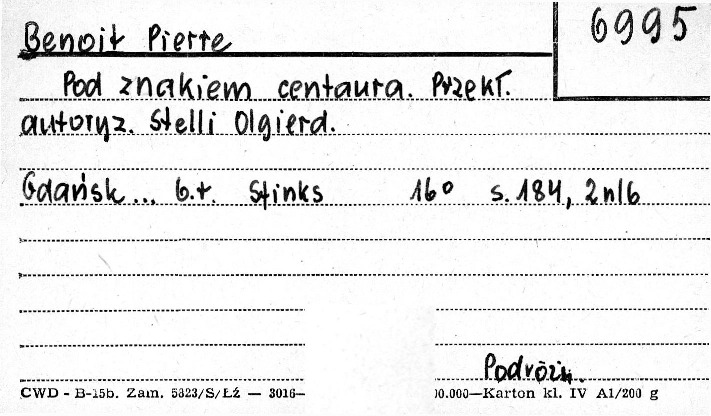 6995
Benoit Pierre
Pod znakiem centaura. Przekł.
autoryz. Stelli Olgierd.
Gdańsk... b.r. Sfinks 16° s. 184, 2 nlb
Podróżn.
CWD - B-15b. Zam. 5823/S/ŁŹ — 3016— 00.000—Karton kl. IV A1/200 g